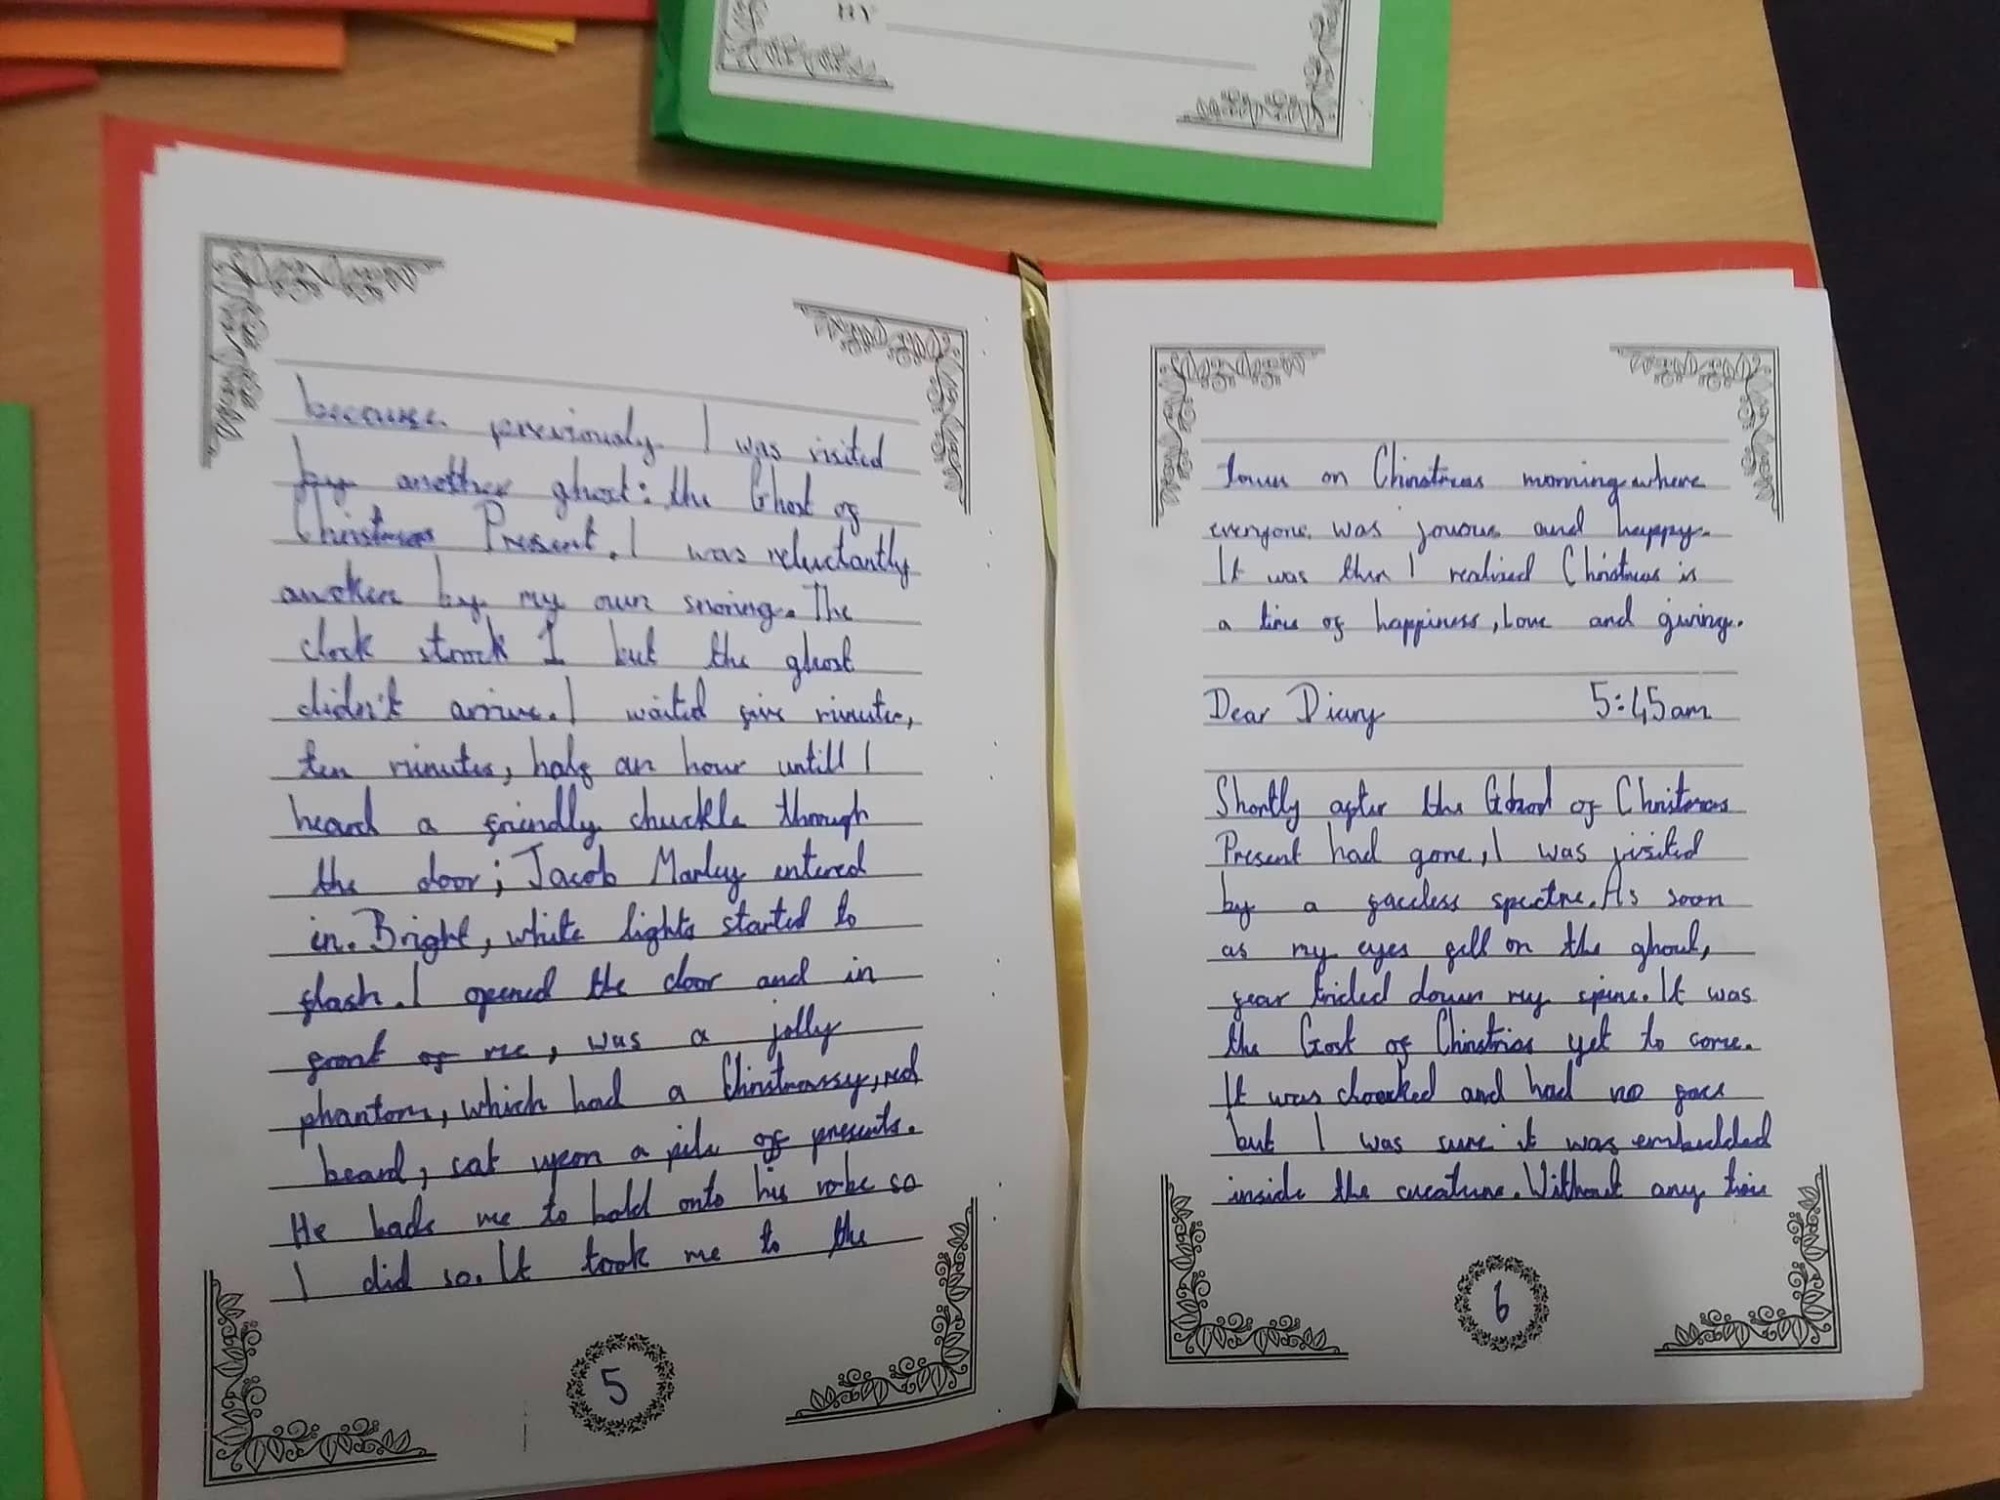 BY
because previously I was visited
by another ghost: the Ghost of
Christmas Present. I was reluctantly
awoken by my own snoring. The
clock strook 1 but the ghost
didn't arrive. I waited five minutes,
ten minutes, half an hour untill I
heard a friendly chuckle through
the door; Jacob Marley entered
in. Bright, white lights started to
flash. I opened the door and in
front of me, was a jolly
phantom, which had a Christmassy, red
beard, sat upon a pile of presents.
He bade me to hold onto his robe so
I did so. It took me to the
5
town on Christmas morning where
everyone was joyous and happy.
It was then I realised Christmas is
a time of happiness, love and giving.
Dear Diary 5:45am
Shortly after the Ghost of Christmas
Present had gone, I was visited
by a faceless spectre. As soon
as my eyes fell on the ghoul,
fear tricled down my spine. It was
the Gost of Christmas yet to come.
It was chooked and had no face
but I was sure it was embedded
inside the creature. Without any time
6